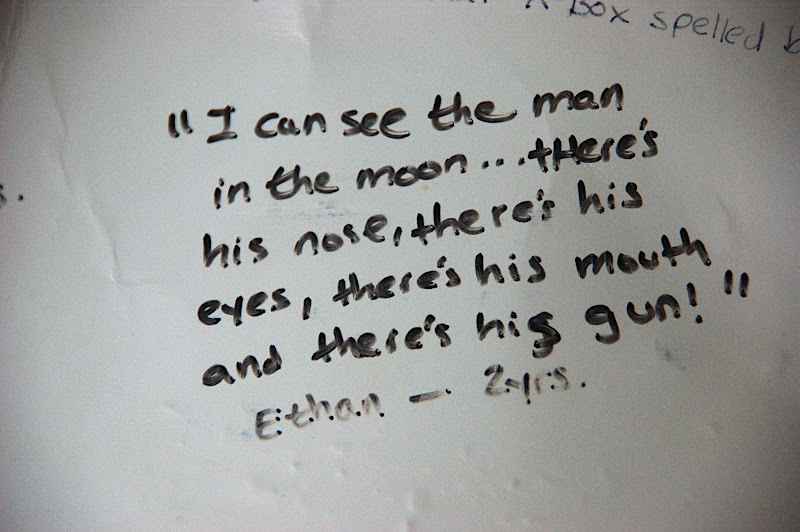 A BOX spelled
"I can see the man
in the moon...tHere's
s.
his nose, there's his
eyes, there's his mouth
and there's his gun!"
Ethan — 2yrs.